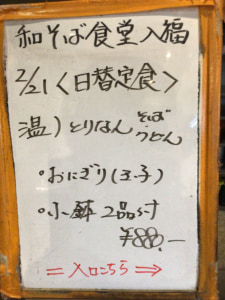 和そば食堂入福
2/21〈日替定食〉
温)とりなん そば うどん
・おにぎり(玉子)
・小鉢2品付
¥880.-
＝入口こちら⇒